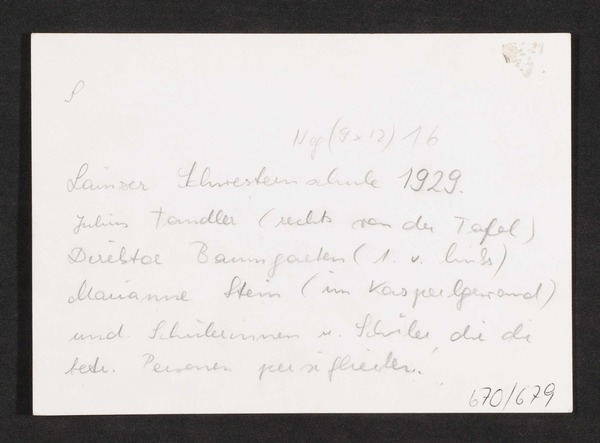 S
Neg (9x12) 16
Lainzer Schwesternschule 1929.
Julius Tandler (rechts von der Tafel)
Direktor Baumgarten (1. v. links)
Marianne Stein (im Kasperlgewand)
und Schülerinnen u. Schüler die die
betr. Personen persiflieren!
670/679